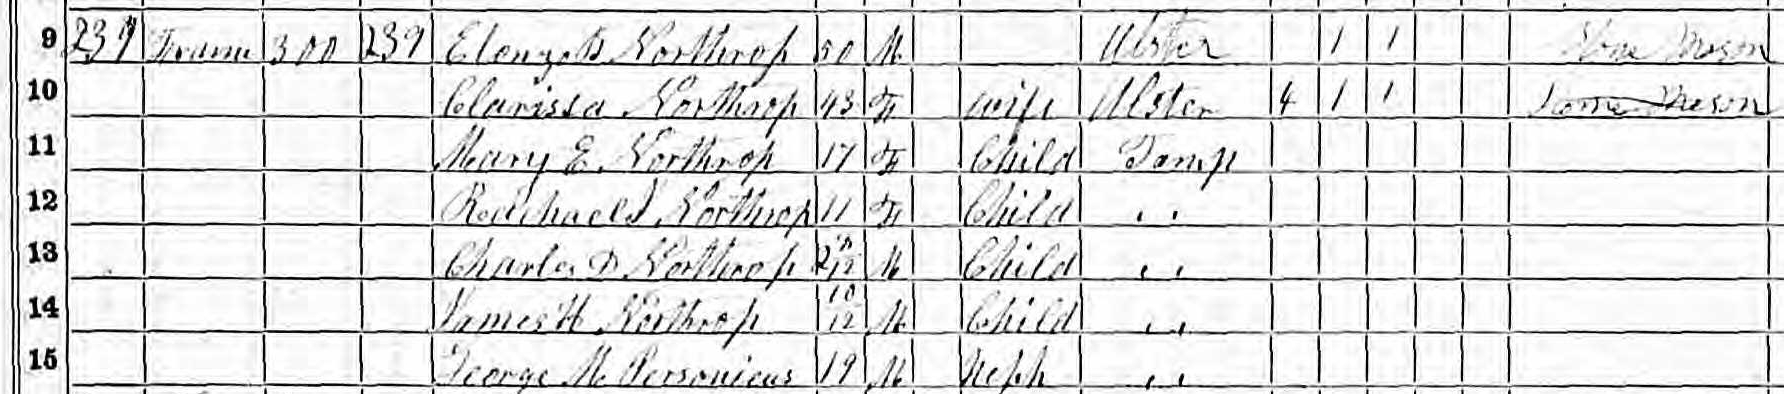 9 239 Frame 300 239 Elonzo D Northrop 50 M Ulster 1 1 Stone Meson
10 Clarissa Northrop 43 F Wife Ulster 4 1 1 Stone Meson
11 Mary E. Northrop 17 F Child Tomp
12 Rachael Northrop 11 F Child " "
13 Charles D Northrop 2 /12 M Child " "
14 James H Northrop 10/12 M Child " "
15 George M Personieus 19 M Neph " "